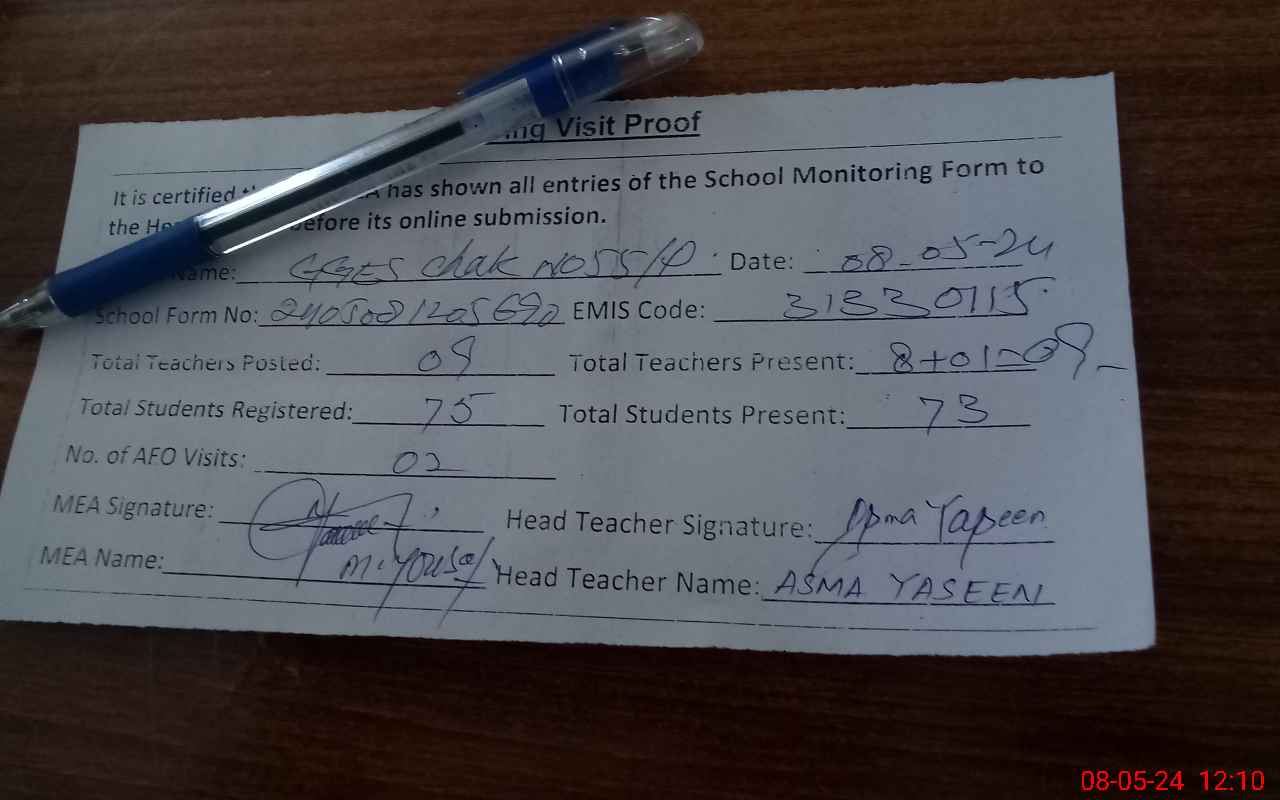 ing Visit Proof
It is certified has shown all entries of the School Monitoring Form to
the before its online submission.
Name: GGES Chak NO 55/P Date: 08-05-24
School Form No: EMIS Code: 31330115
Total Teachers Posted: 09 Total Teachers Present: 8+01=09
Total Students Registered: 75 Total Students Present: 73
No. of AFO Visits: 02
MEA Signature: Head Teacher Signature: Asma Yaseen
MEA Name: M. Yousaf Head Teacher Name: ASMA YASEEN
08-05-24 12:10